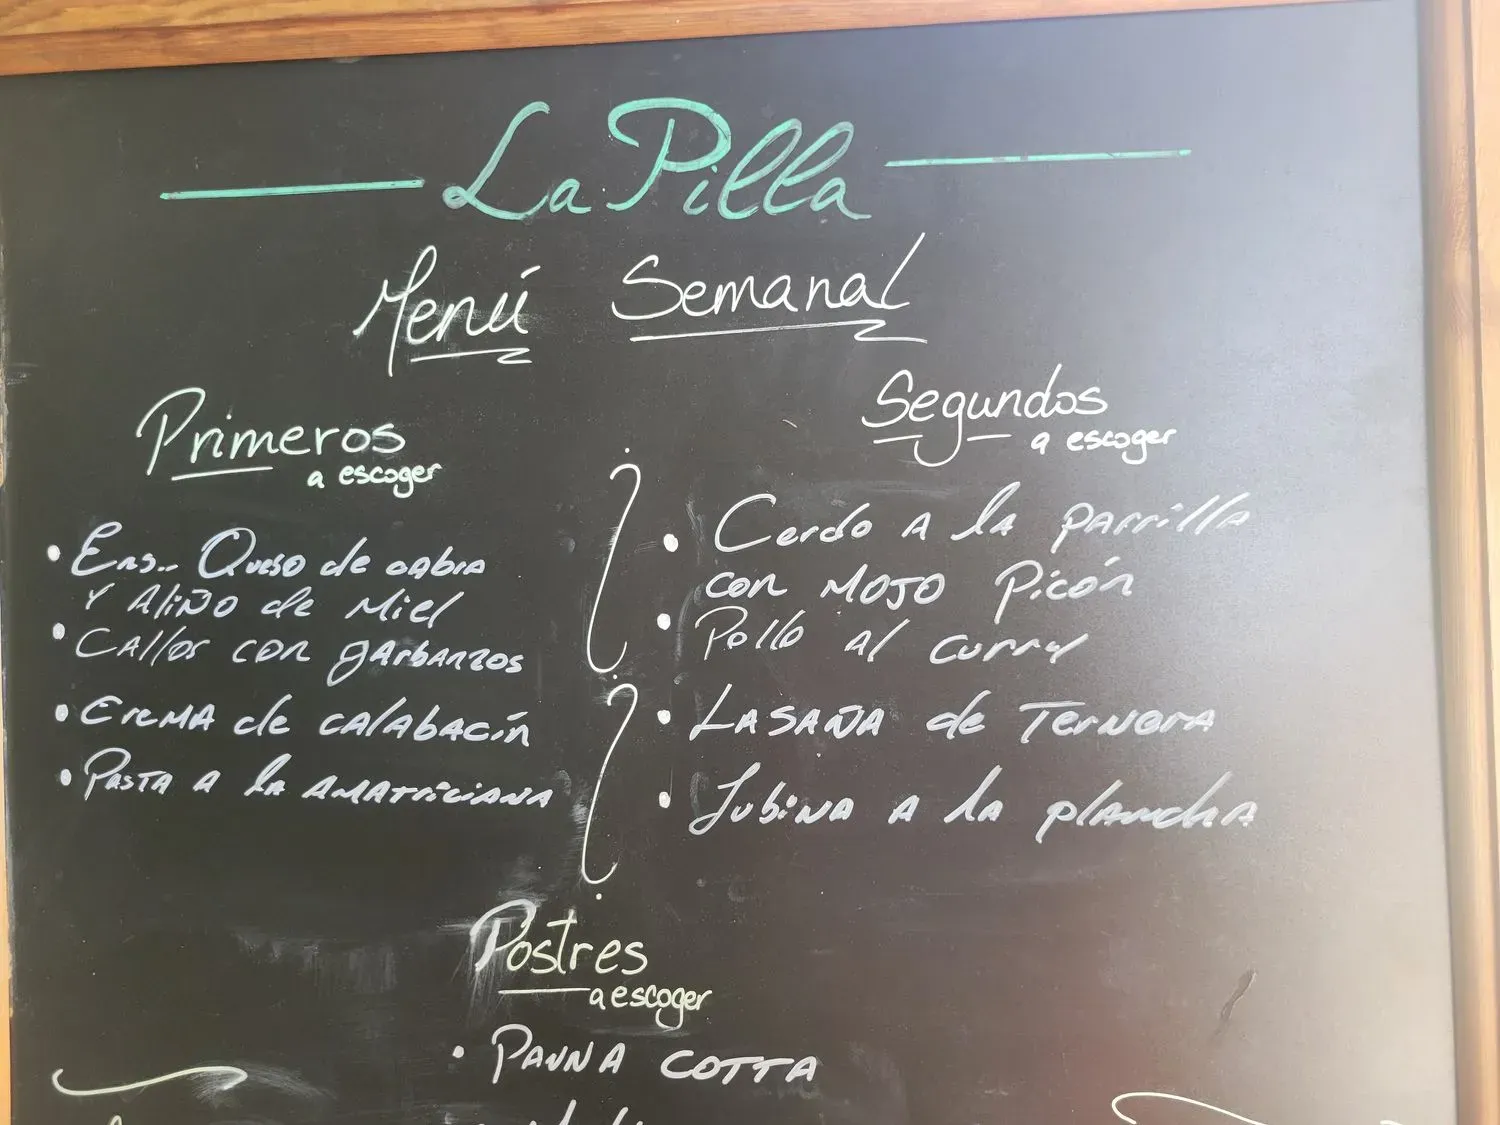 La Pilla
Menú Semanal
Primeros
a escoger
• Ens.. Queso de cabra
Y Aliño de Miel
• Callos con garbanzos
• Crema de calabacín
• Pasta a la amatriciana
Segundos
a escoger
• Cerdo a la parrilla
con mojo Picón
• Pollo al curry
• Lasaña de Ternera
• Lubina a la plancha
Postres
a escoger
• Panna cotta